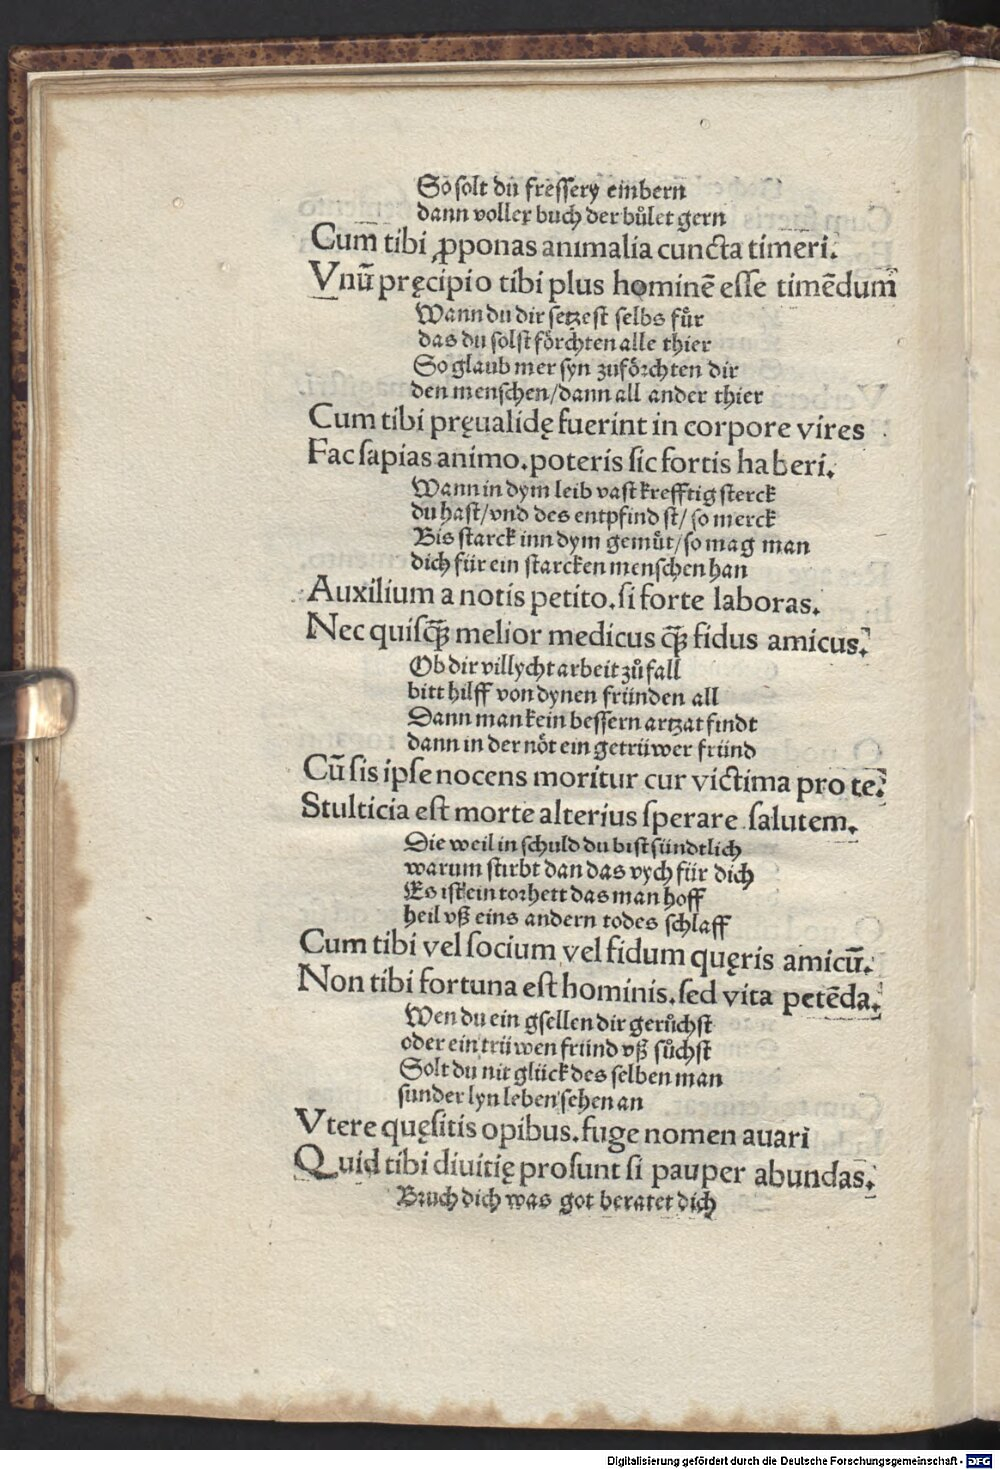 So solt du fressery einbern
dann voller buch der bůlet gern
Cum tibi ꝓponas animalia cuncta timeri.
Vnū pręcipio tibi plus hominē esse timēdum
Wann du dir setzest selbs fůr
das du solst főrchten alle thier
So glaub mer syn zufőrchten dir
den menschen/dann all ander thier
Cum tibi pręualidę fuerint in corpore vires
Fac sapias animo.poteris sic fortis haberi.
Wann in dym leib vast krefftig sterck
du hast/vnd des entpfind st/so merck
Bis starck inn dym gemůt/so mag man
dich für ein starcken menschen han
Auxilium a notis petito.si forte laboras.
Nec quisq̄ꝫ melior medicus q̄ꝫ fidus amicus.
Ob dir villycht arbeit zůfall
bitt hilff von dynen fründen all
Dann man kein bessern artzat findt
dann in der nőt ein getrüwer fründ
Cū sis ipse nocens moritur cur victima pro te?
Stulticia est morte alterius sperare salutem.
Die weil in schuld du bist sündtlich
warum stirbt dan das vych für dich
Es ist ein torhett das man hoff
heil vß eins andern todes schlaff
Cum tibi vel socium vel fidum quęris amicū.
Non tibi fortuna est hominis.sed vita petēda.
Wen du ein gsellen dir gerůchst
oder ein trüwen fründ vß sůchst
Solt du nit glück des selben man
sunder syn leben sehen an
Vtere quęsitis opibus.fuge nomen auari
Quid tibi diuitię prosunt si pauper abundas.
Bruch dich was got beratet dich
Digitalisierung gefördert durch die Deutsche Forschungsgemeinschaft - DFG